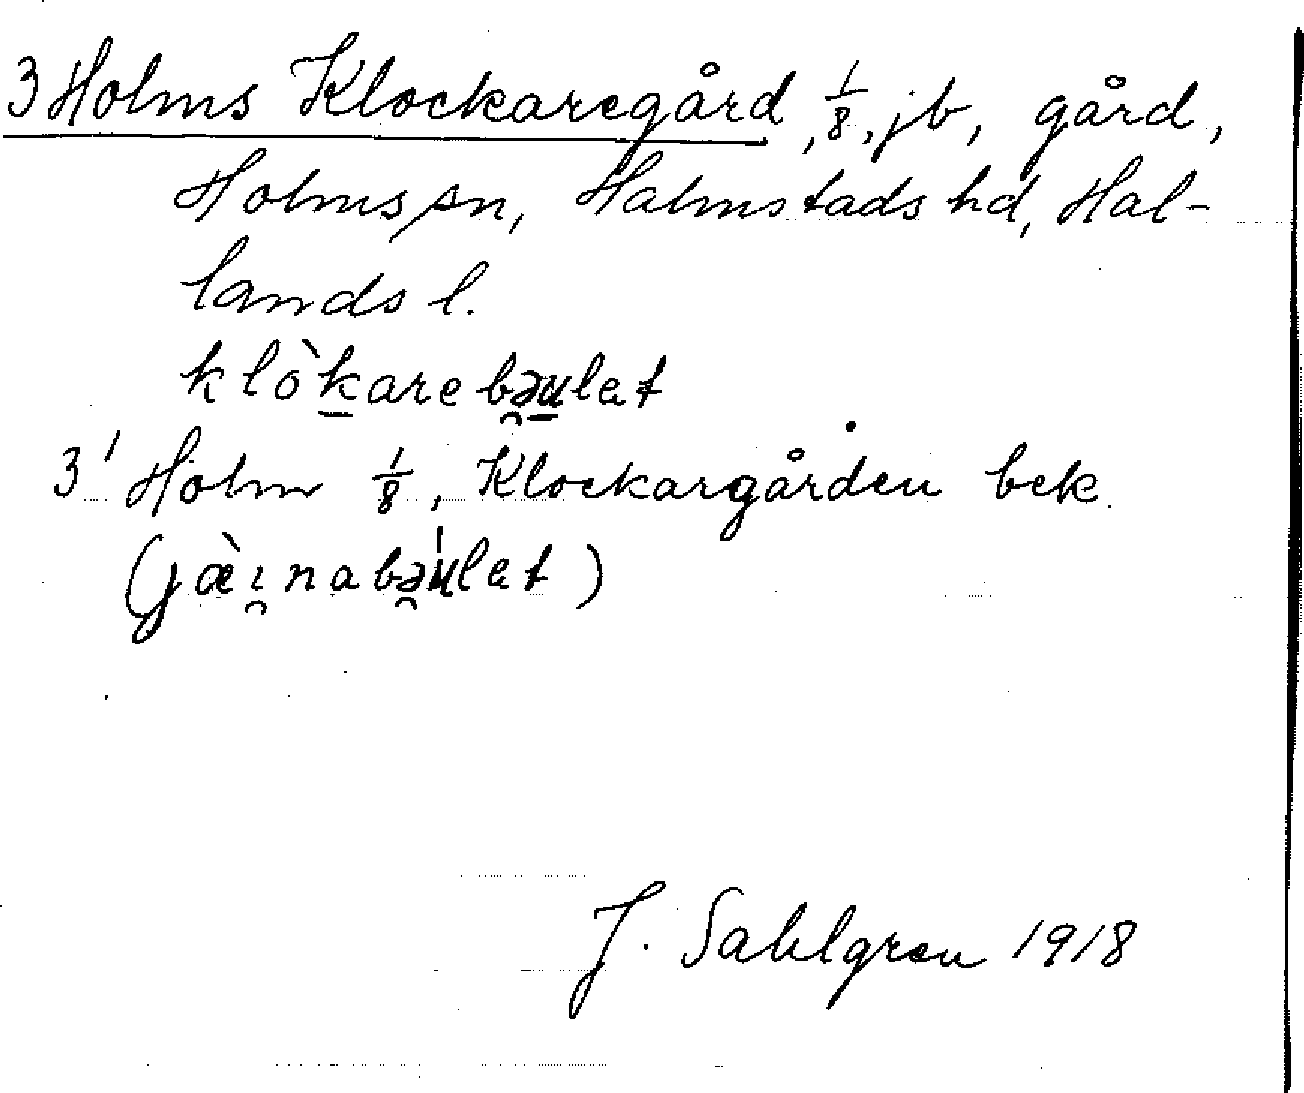 3 Holms Klockaregård, 1/8, jb, gård,
Holms sn, Halmstads hd, Hal-
lands l.
klò̱kare bə̯u̱let
3¹ Holm 1/8, Klockargården bek.
(jæ̀ı̯nabə̯úlet)
J. Sahlgren 1918